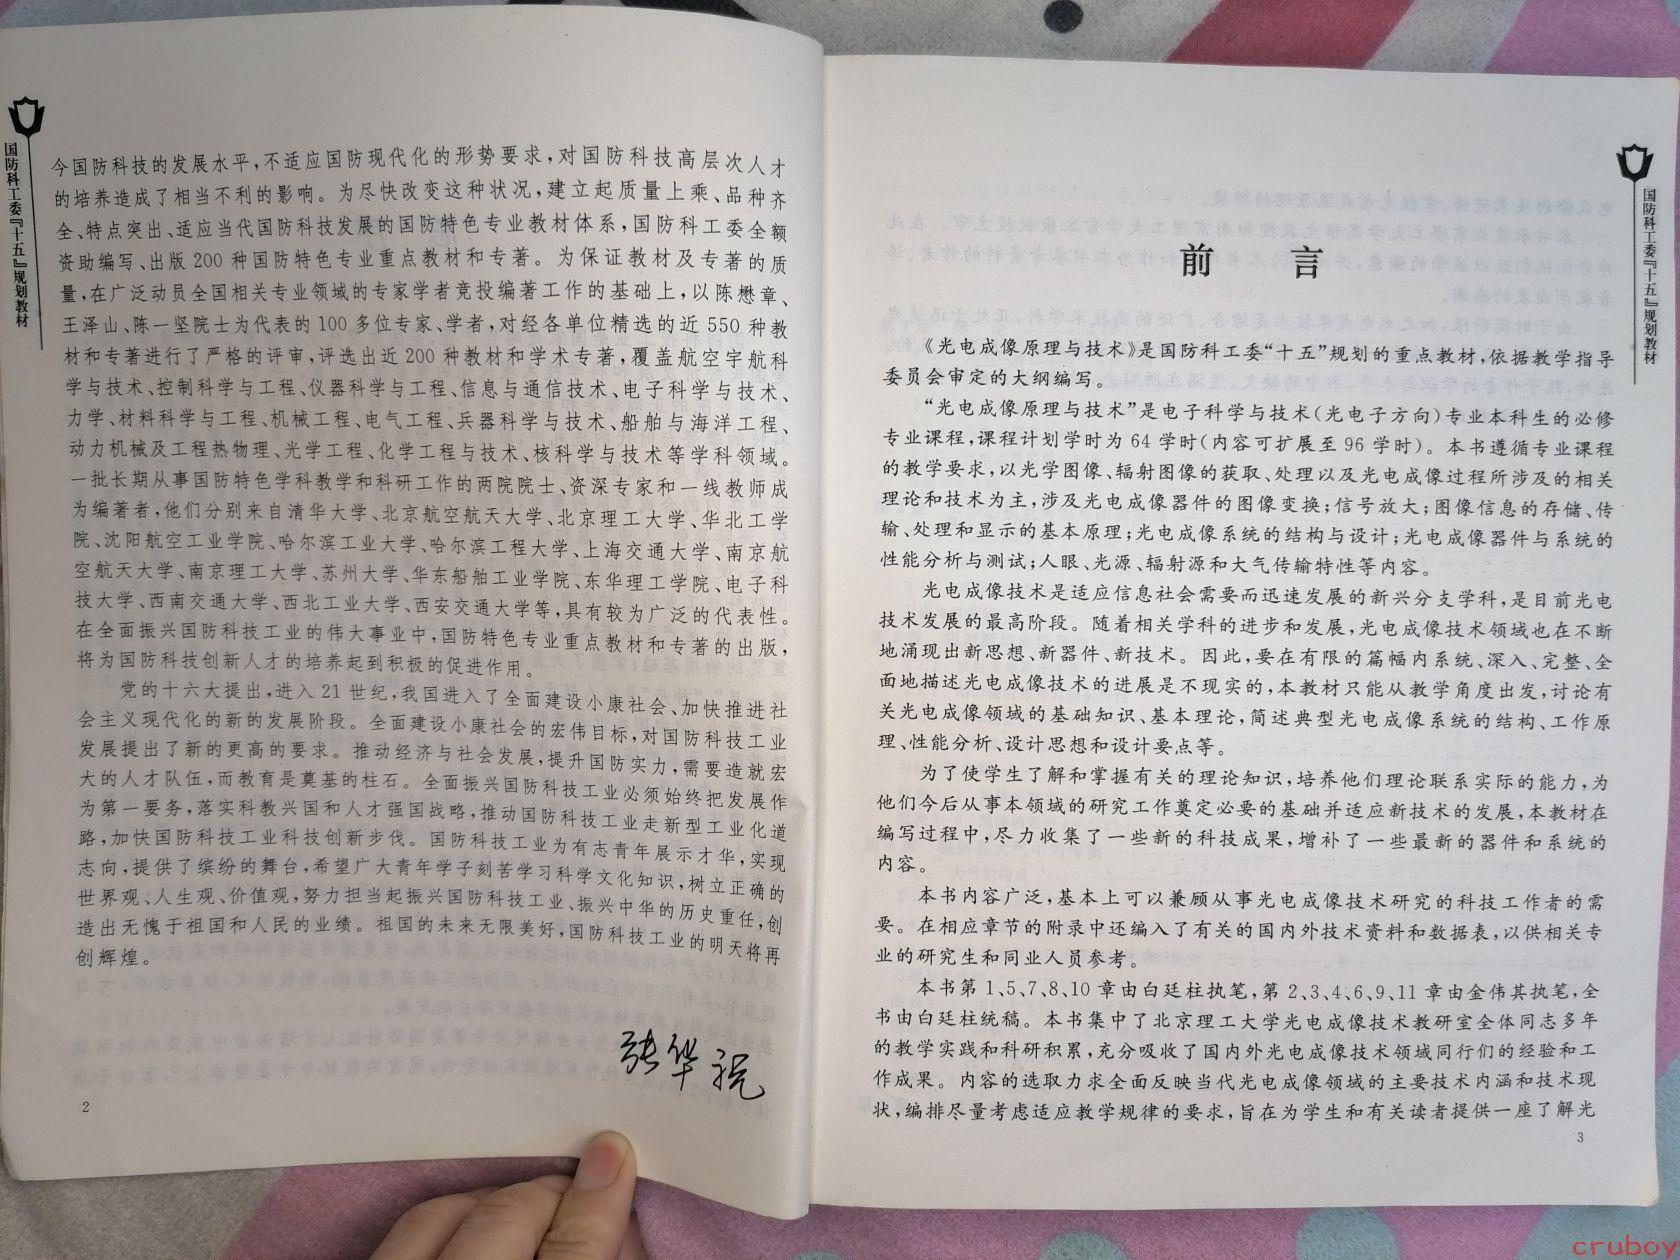 国防科工委『十五』规划教材
今国防科技的发展水平,不适应国防现代化的形势要求,对国防科技高层次人才
的培养造成了相当不利的影响。为尽快改变这种状况,建立起质量上乘、品种齐
全、特点突出、适应当代国防科技发展的国防特色专业教材体系,国防科工委全额
资助编写、出版200种国防特色专业重点教材和专著。为保证教材及专著的质
量,在广泛动员全国相关专业领域的专家学者竞投编著工作的基础上,以陈懋章、
王泽山、陈一坚院士为代表的100多位专家、学者,对经各单位精选的近550种教
材和专著进行了严格的评审,评选出近200种教材和学术专著,覆盖航空宇航科
学与技术、控制科学与工程、仪器科学与工程、信息与通信技术、电子科学与技术、
力学、材料科学与工程、机械工程、电气工程、兵器科学与技术、船舶与海洋工程、
动力机械及工程热物理、光学工程、化学工程与技术、核科学与技术等学科领域。
一批长期从事国防特色学科教学和科研工作的两院院士、资深专家和一线教师成
为编著者,他们分别来自清华大学、北京航空航天大学、北京理工大学、华北工学
院、沈阳航空工业学院、哈尔滨工业大学、哈尔滨工程大学、上海交通大学、南京航
空航天大学、南京理工大学、苏州大学、华东船舶工业学院、东华理工学院、电子科
技大学、西南交通大学、西北工业大学、西安交通大学等,具有较为广泛的代表性。
在全面振兴国防科技工业的伟大事业中,国防特色专业重点教材和专著的出版,
将为国防科技创新人才的培养起到积极的促进作用。
党的十六大提出,进入21世纪,我国进入了全面建设小康社会、加快推进社
会主义现代化的新的发展阶段。全面建设小康社会的宏伟目标,对国防科技工业
发展提出了新的更高的要求。推动经济与社会发展,提升国防实力,需要造就宏
大的人才队伍,而教育是奠基的柱石。全面振兴国防科技工业必须始终把发展作
为第一要务,落实科教兴国和人才强国战略,推动国防科技工业走新型工业化道
路,加快国防科技工业科技创新步伐。国防科技工业为有志青年展示才华,实现
志向,提供了缤纷的舞台,希望广大青年学子刻苦学习科学文化知识,树立正确的
世界观、人生观、价值观,努力担当起振兴国防科技工业、振兴中华的历史重任,创
造出无愧于祖国和人民的业绩。祖国的未来无限美好,国防科技工业的明天将再
创辉煌。
张华祝
2
国防科工委『十五』规划教材
前 言
《光电成像原理与技术》是国防科工委“十五”规划的重点教材,依据教学指导
委员会审定的大纲编写。
“光电成像原理与技术”是电子科学与技术(光电子方向)专业本科生的必修
专业课程,课程计划学时为64学时(内容可扩展至96学时)。本书遵循专业课程
的教学要求,以光学图像、辐射图像的获取、处理以及光电成像过程所涉及的相关
理论和技术为主,涉及光电成像器件的图像变换;信号放大;图像信息的存储、传
输、处理和显示的基本原理;光电成像系统的结构与设计;光电成像器件与系统的
性能分析与测试;人眼、光源、辐射源和大气传输特性等内容。
光电成像技术是适应信息社会需要而迅速发展的新兴分支学科,是目前光电
技术发展的最高阶段。随着相关学科的进步和发展,光电成像技术领域也在不断
地涌现出新思想、新器件、新技术。因此,要在有限的篇幅内系统、深入、完整、全
面地描述光电成像技术的进展是不现实的,本教材只能从教学角度出发,讨论有
关光电成像领域的基础知识、基本理论,简述典型光电成像系统的结构、工作原
理、性能分析、设计思想和设计要点等。
为了使学生了解和掌握有关的理论知识,培养他们理论联系实际的能力,为
他们今后从事本领域的研究工作奠定必要的基础并适应新技术的发展,本教材在
编写过程中,尽力收集了一些新的科技成果,增补了一些最新的器件和系统的
内容。
本书内容广泛,基本上可以兼顾从事光电成像技术研究的科技工作者的需
要。在相应章节的附录中还编入了有关的国内外技术资料和数据表,以供相关专
业的研究生和同业人员参考。
本书第1、5、7、8、10章由白廷柱执笔,第2、3、4、6、9、11章由金伟其执笔,全
书由白廷柱统稿。本书集中了北京理工大学光电成像技术教研室全体同志多年
的教学实践和科研积累,充分吸收了国内外光电成像技术领域同行们的经验和工
作成果。内容的选取力求全面反映当代光电成像领域的主要技术内涵和技术现
状,编排尽量考虑适应教学规律的要求,旨在为学生和有关读者提供一座了解光
3
cruboy